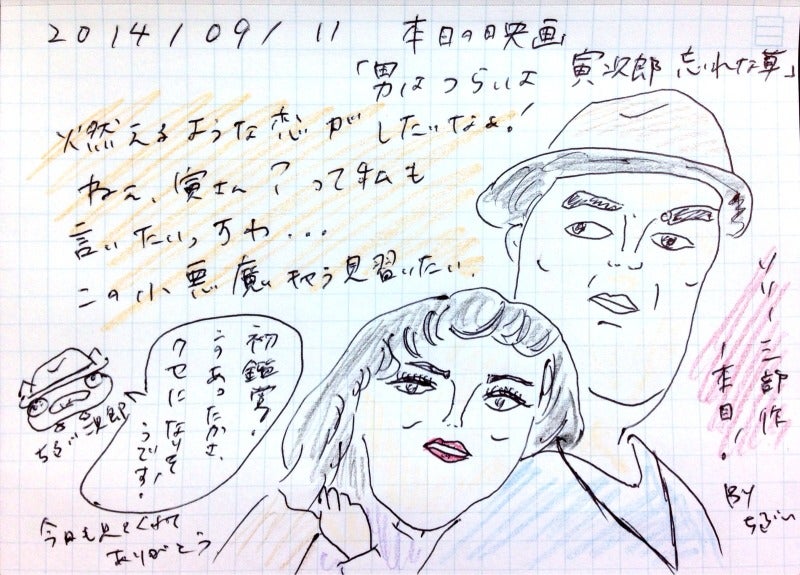 2014/09/11 本日の映画
「男はつらいよ 寅次郎 忘れな草」
燃えるような恋がしたいなぁ!
ねぇ、寅さん?って私も
言いたいっすわ...
この小悪魔
見習いたい.
リリー三部作
一本目!
BY
初鑑賞!
このあったかさ、
クセになりそ
うです!
寅次郎
今日も見てくれて
ありがとう